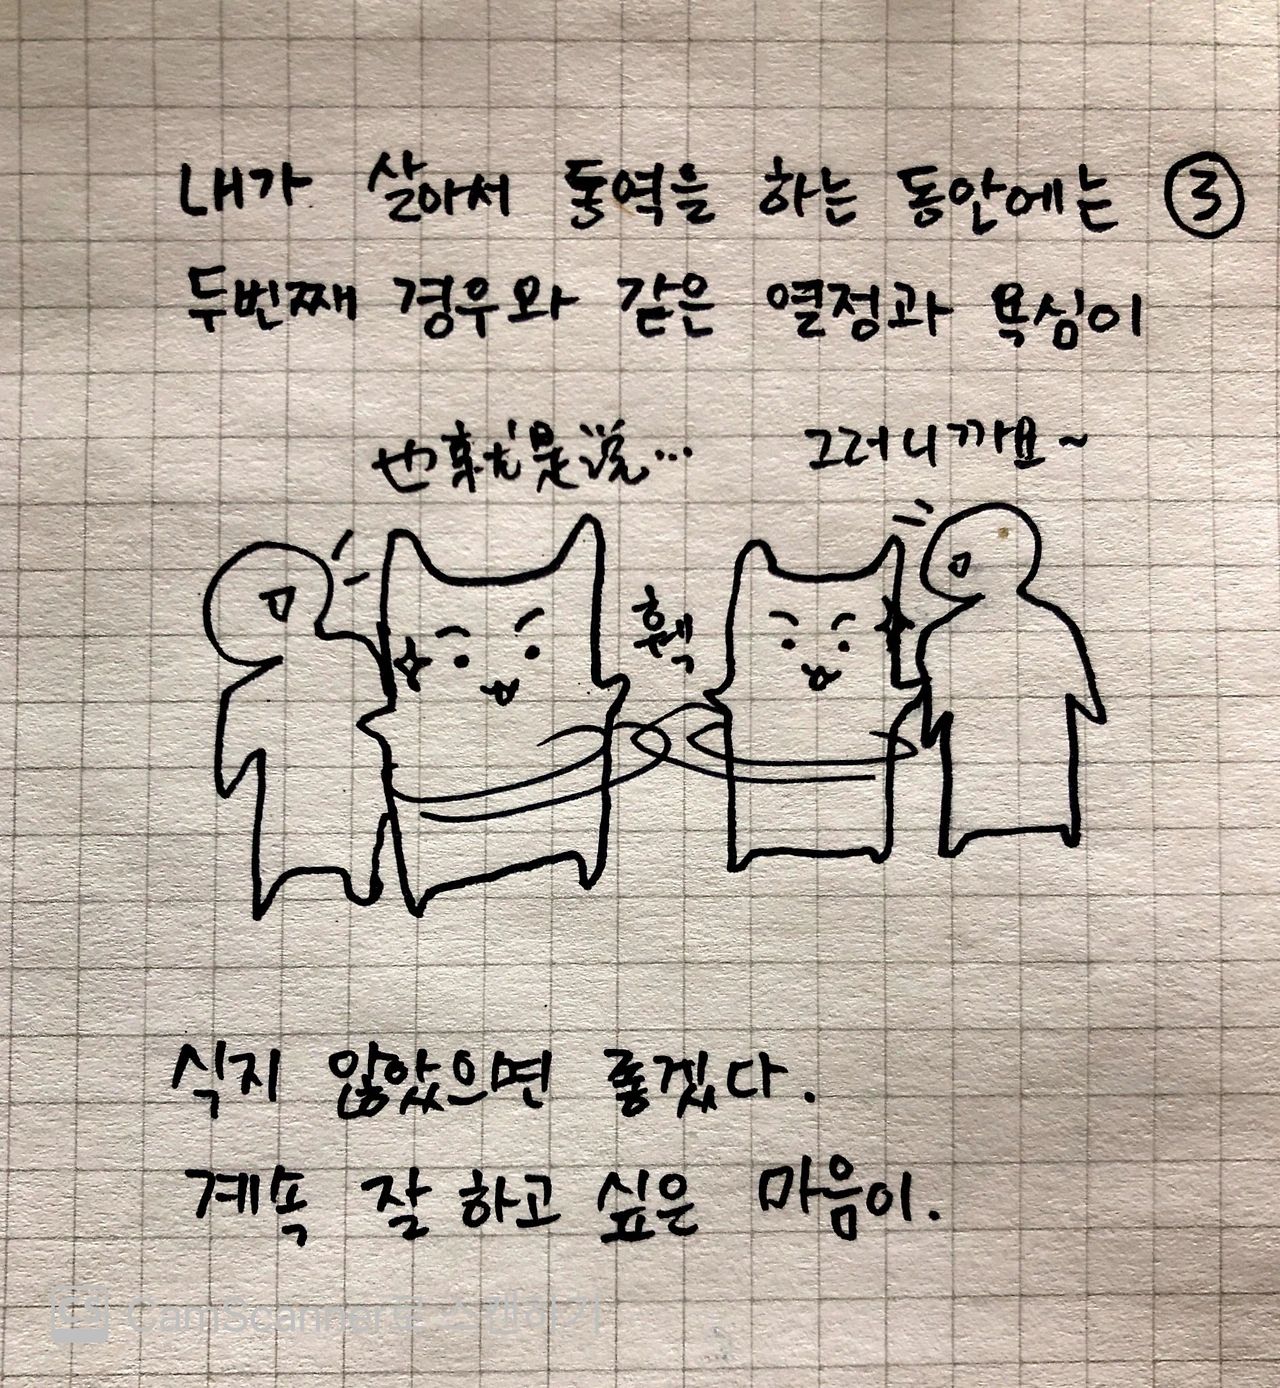 내가 살아서 통역을 하는 동안에는 ③
두번째 경우와 같은 열정과 욕심이
也就是说... 그러니까요~
휙
식지 않았으면 좋겠다.
계속 잘 하고 싶은 마음이.
CS CamScanner로 스캔하기